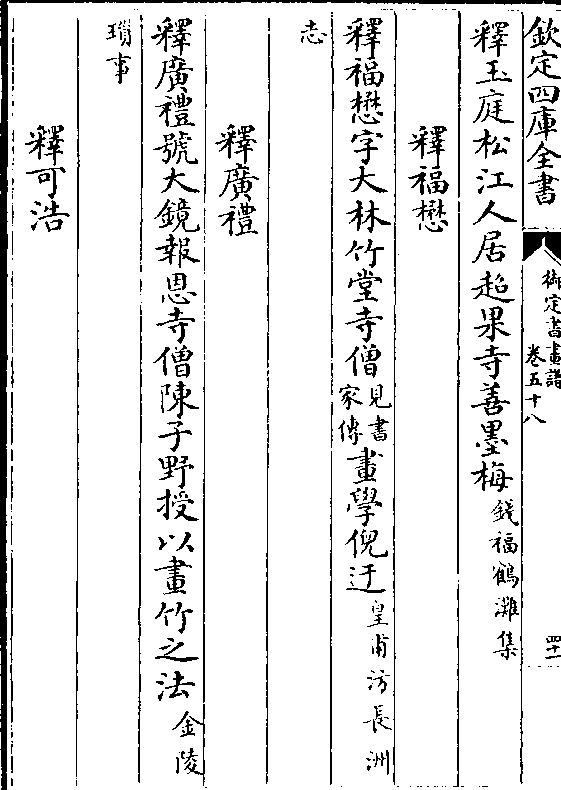 欽定四庫全書
御定書畫譜
卷五十八
四十一
釋玉庭松江人居超果寺善墨梅錢福鶴灘集
釋福懋
釋福懋字大林竹堂寺僧見書家傳畫學倪迂皇甫汸長洲
志
釋廣禮
釋廣禮號大鏡報恩寺僧陳子野授以畫竹之法金陵
瑣事
釋可浩